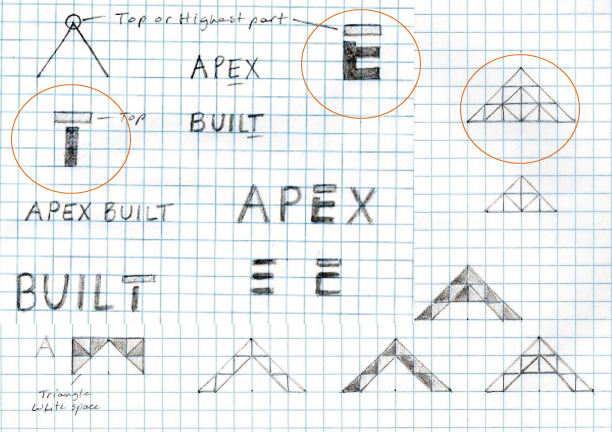 Top or Highest part
APEX
E
Top
T
BUILT
APEX BUILT
APEX
BUILT
E E
A
Triangle
White space